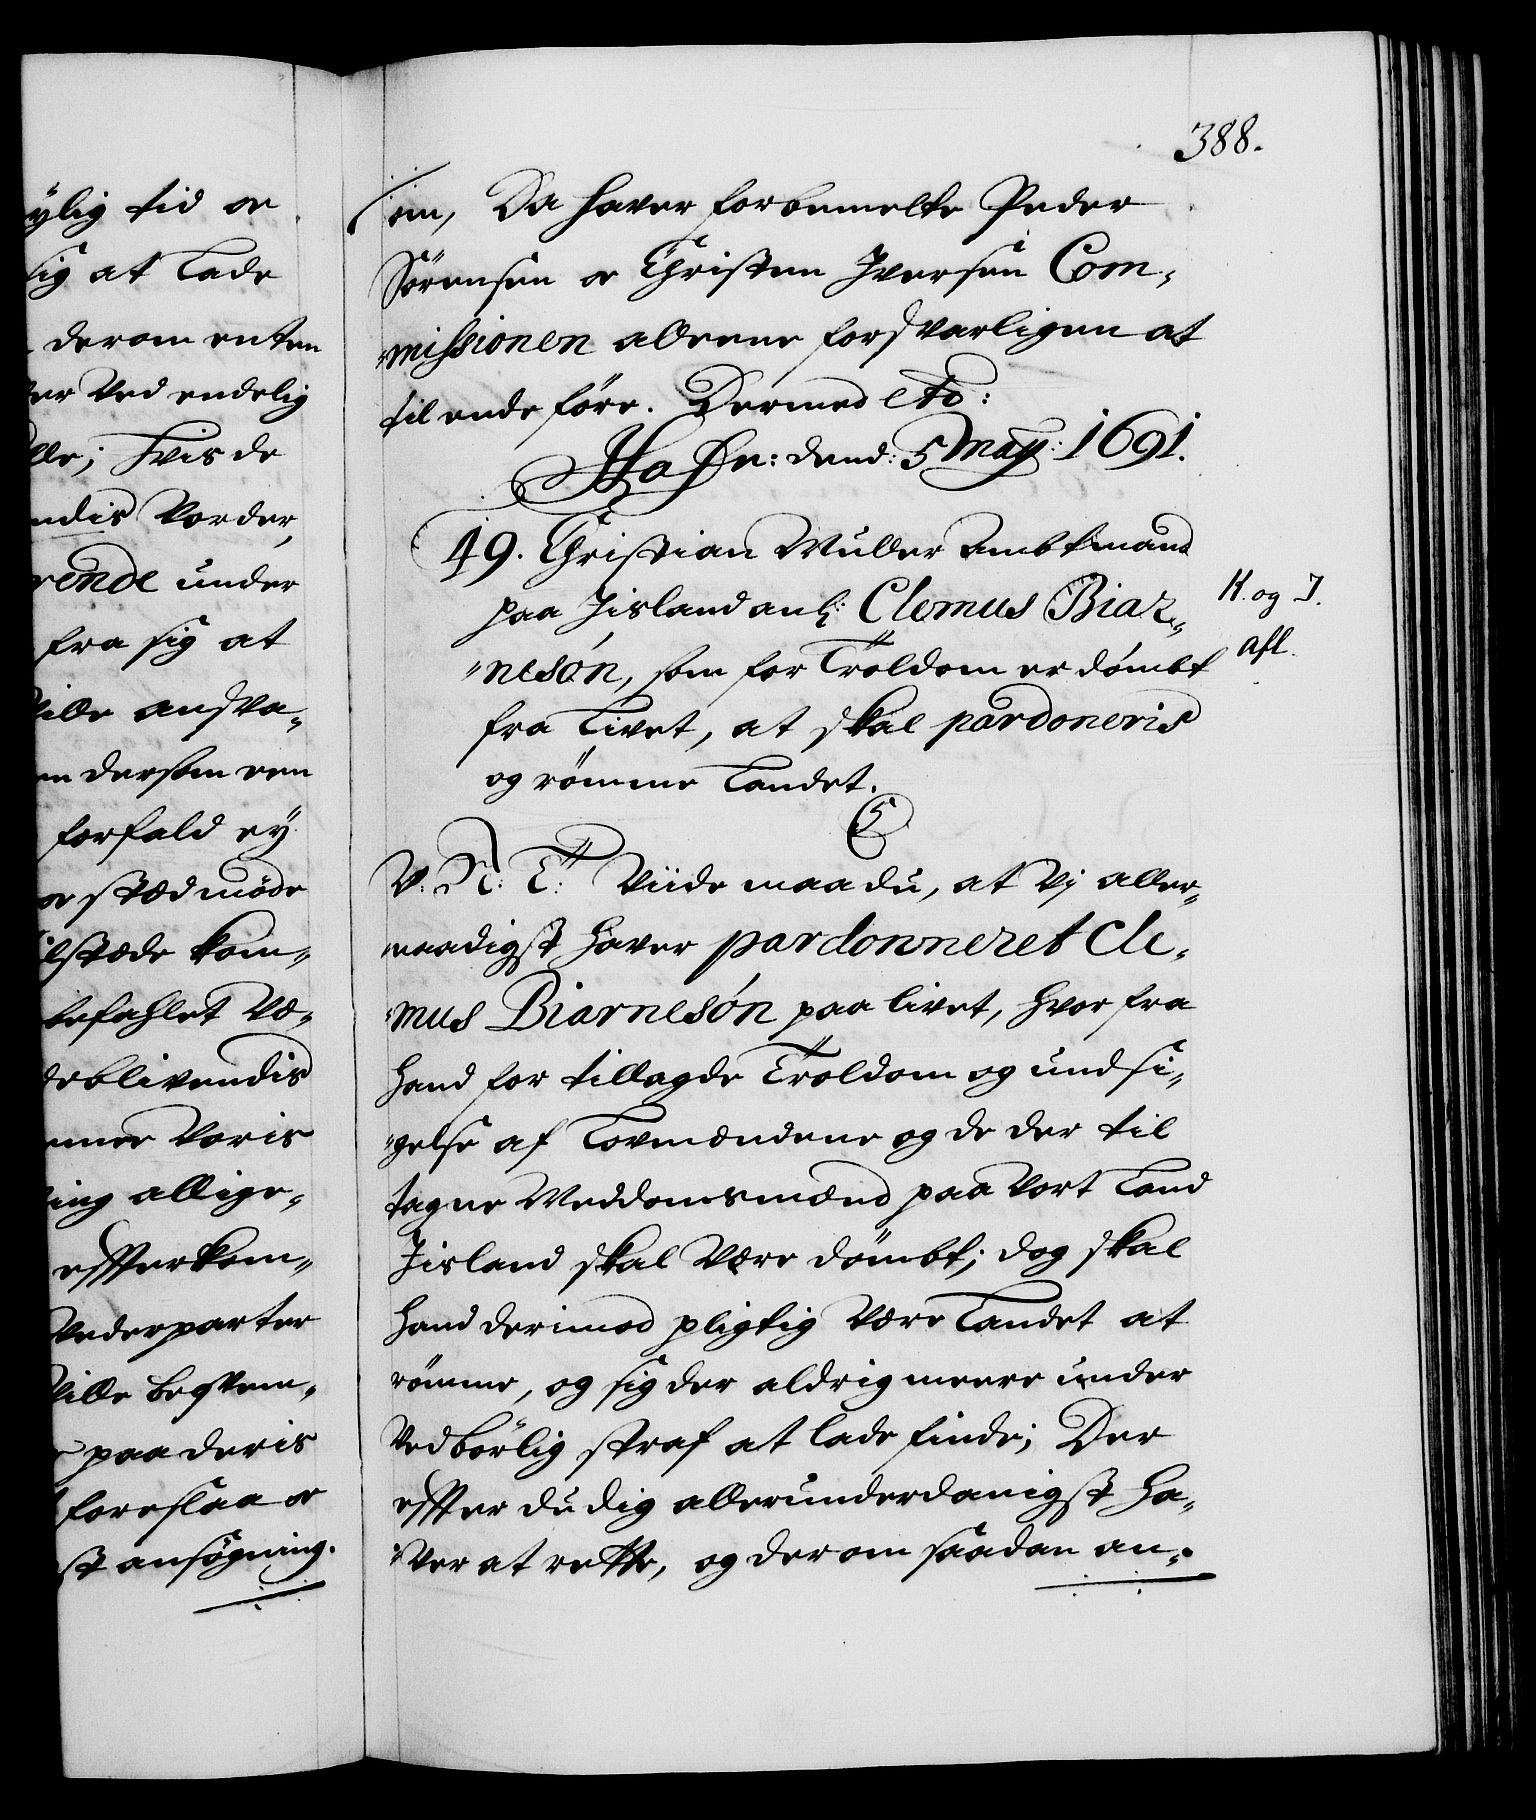 388.
ylig tid oc
sig at Lade
derom enten
er Ved endelig
lle; Hvis de
endis Vorder,
rende under
fra sig at
ville ansva-
en dersom een
forfald ey
oc stædmöde
ilstede kom-
befahlet Væ-
debliven­dis
Voris
ing allige-
effterkom-
Vederparter
Ville beqvem-
paa deris
foreslaa oc
st ansögning.
Da haver forbemelte Peder
Sörensen oc Christen Iversen Com-
missionen alleene forsvarligen at
til ende före. Dermed etc:
Hafn: dend: 5 May: 1691.
49. Christian Muller Ambtmand
paa Jisland anl: Clemus Biar-
nesón, som for Troldom er dömbt
fra Livet, at skal pardoneris
og römme Landet.
H. og I.
afl.
C5
V. N: T: Viide maa du, at Vj aller-
naadigst haver pardonneret Cle-
mus Biarnesón paa livet, hvor fra
hand for tillagde Troldom og undsi-
gelse af Lovmændene og de der til
tagne Meddomsmænd paa Vort Land
Jisland skal Være dömbt; dog skal
hand derimod pligtig Være Landet at
römme, og sig der aldrig meere under
Vedbörlig straf at lade finde; Der
effter du dig allerunderdanigst ha-
ver at rette, og derom saadan an-